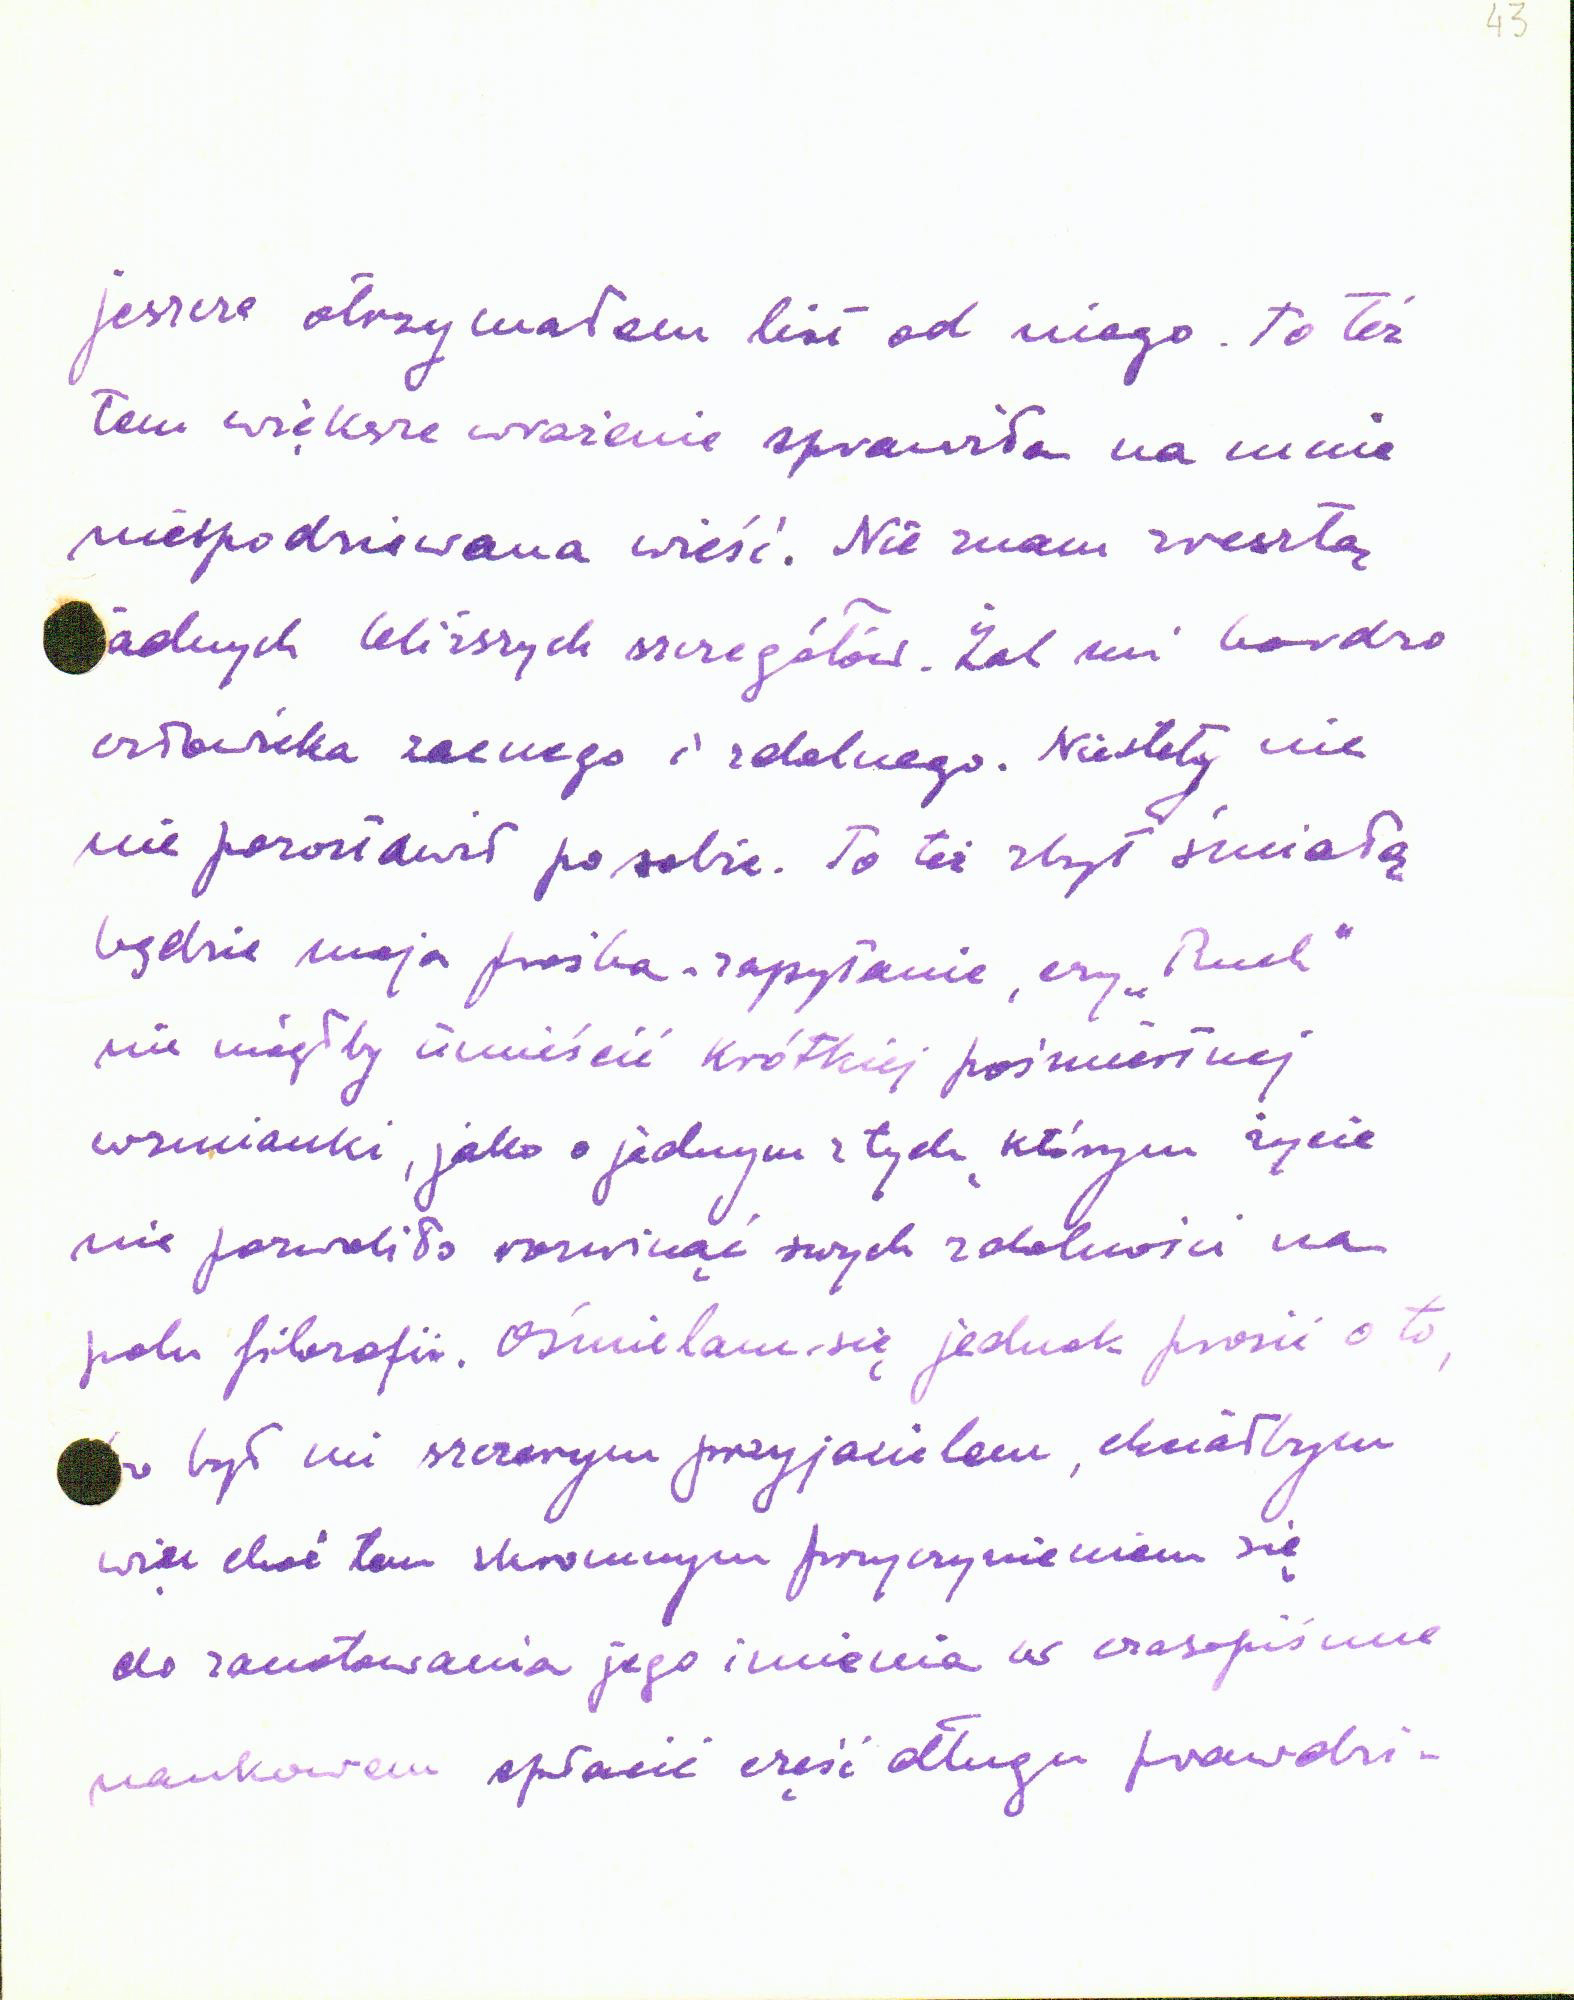 43
jeszcze otrzymałem list od niego. To też
tem większe wrażenie sprawiła na mnie
niespodziewana wieść. Nie znam zresztą
żadnych bliższych szczegółów. Żal mi bardzo
człowieka zacnego i zdolnego. Niestety nie
nie pozostawił po sobie. To też zbyt śmiałą
będzie moja prośba-zapytanie, czy „Ruch"
nie mógłby umieścić krótkiej pośmiertnej
wzmianki, jako o jednym z tych, którym życie
nie pozwoliło rozwinąć swych zdolności na
polu filozofii. Ośmielam się jednak prosić o to,
był mi szczerym przyjacielem, chciałbym
więc choć tem skromnym przyczynieniem się
do zanotowania jego imienia w czasopiśmie
naukowem spłacić część długu prawdzi-